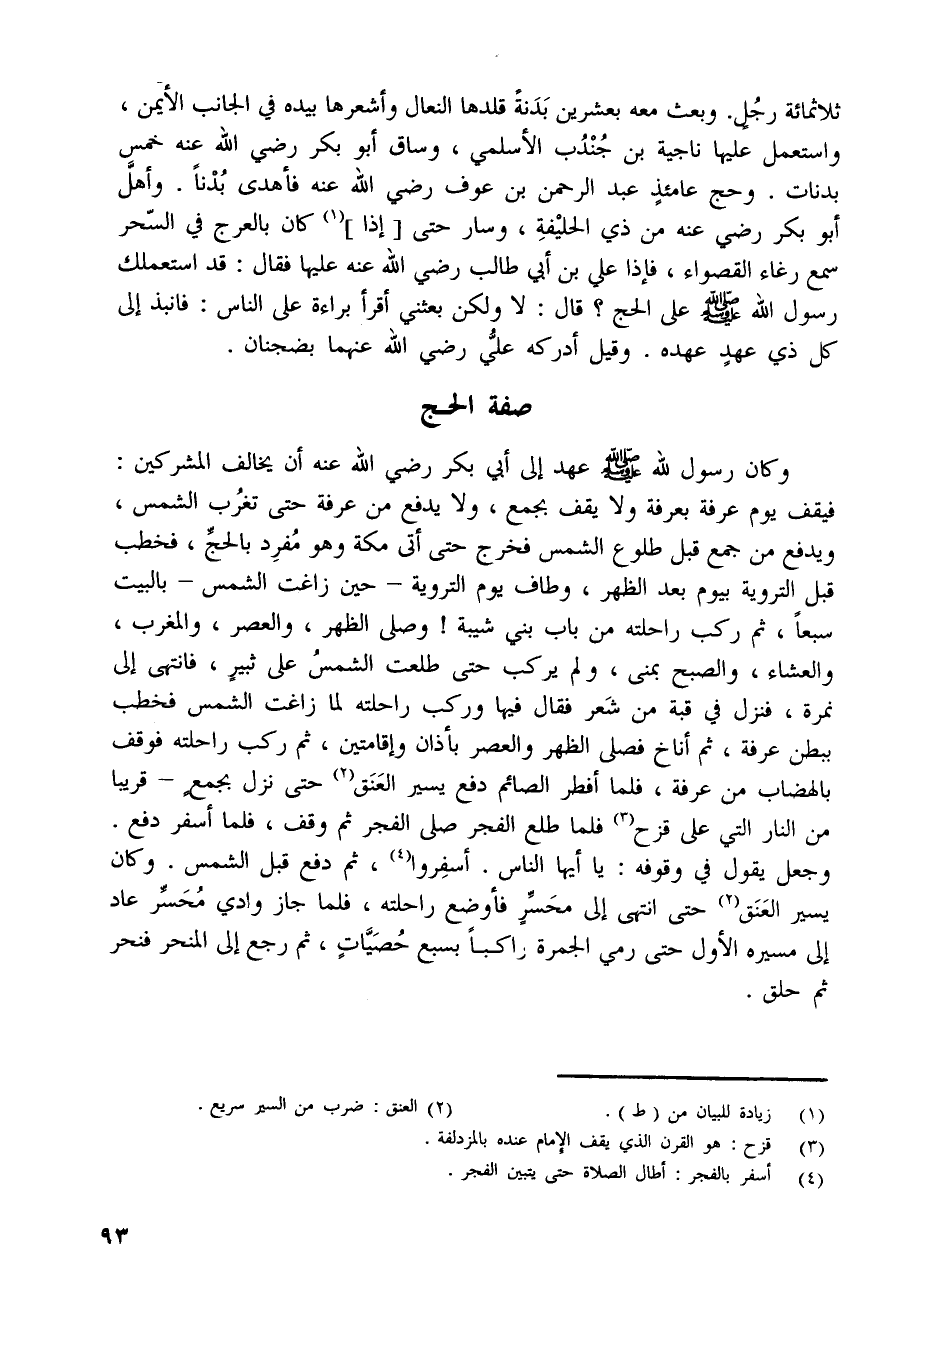 ثلاثمائة رجُلٍ. وبعث معه بعشرين بَدَنةً قلدها النعال وأشعرها بيده في الجانب الأيمن ،
واستعمل عليها ناجية بن جُنْدُب الأسلمي ، وساق أبو بكر رضي الله عنه خمس
بدنات . وحج عامئذٍ عبد الرحمن بن عوف رضي الله عنه فأهدى بُدْناً . وأهلَّ
أبو بكر رضي عنه من ذي الحليْفةِ ، وسار حتى [ إذا ](١) كان بالعرج في السّحر
سمع رغاء القصواء ، فإذا علي بن أبي طالب رضي الله عنه عليها فقال : قد استعملك
رسول الله ﷺ على الحج ؟ قال : لا ولكن بعثني أقرأ براءة على الناس : فانبذ إلى
كل ذي عهدٍ عهده . وقيل أدركه عليُّ رضي الله عنهما بضجنان .
صفة الحـج
وكان رسول لله ﷺ عهد إلى أبي بكر رضي الله عنه أن يخالف المشركين :
فيقف يوم عرفة بعرفة ولا يقف بجمع ، ولا يدفع من عرفة حتى تغرُب الشمس ،
ويدفع من جمع قبل طلوع الشمس فخرج حتى أتى مكة وهو مُفرِد بالحجِّ ، فخطب
قبل التروية بيوم بعد الظهر ، وطاف يوم التروية – حين زاغت الشمس – بالبيت
سبعاً ، ثم ركب راحلته من باب بني شيبة ! وصلى الظهر ، والعصر ، والمغرب ،
والعشاء ، والصبح بمنى ، ولم يركب حتى طلعت الشمسُ على ثبيرٍ ، فانتهى إلى
نمرة ، فنزل في قبة من شَعر فقال فيها وركب راحلته لما زاغت الشمس فخطب
ببطن عرفة ، ثم أناخ فصلى الظهر والعصر بأذان وإقامتين ، ثم ركب راحلته فوقف
بالهضاب من عرفة ، فلما أفطر الصائم دفع يسير العَنَق(٢) حتى نزل بجمعٍ – قريبا
من النار التي على قزح(٣) فلما طلع الفجر صلى الفجر ثم وقف ، فلما أسفر دفع .
وجعل يقول في وقوفه : يا أيها الناس . أسفِروا(٤) ، ثم دفع قبل الشمس . وكان
يسير العَنَق(٢) حتى انتهى إلى محَسرٍّ فأوضع راحلته ، فلما جاز وادي مُحَسرٍّ عاد
إلى مسيره الأول حتى رمي الجمرة راكبـاً بسبع حُصَيَّاتٍ ، ثم رجع إلى المنحر فنحر
ثم حلق .
(١) زيادة للبيان من ( ط ) . (٢) العنق : ضرب من السير سريع .
(٣) قزح : هو القرن الذي يقف الإمام عنده بالمزدلفة .
(٤) أسفر بالفجر : أطال الصلاة حتى يتبين الفجر .
٩٣